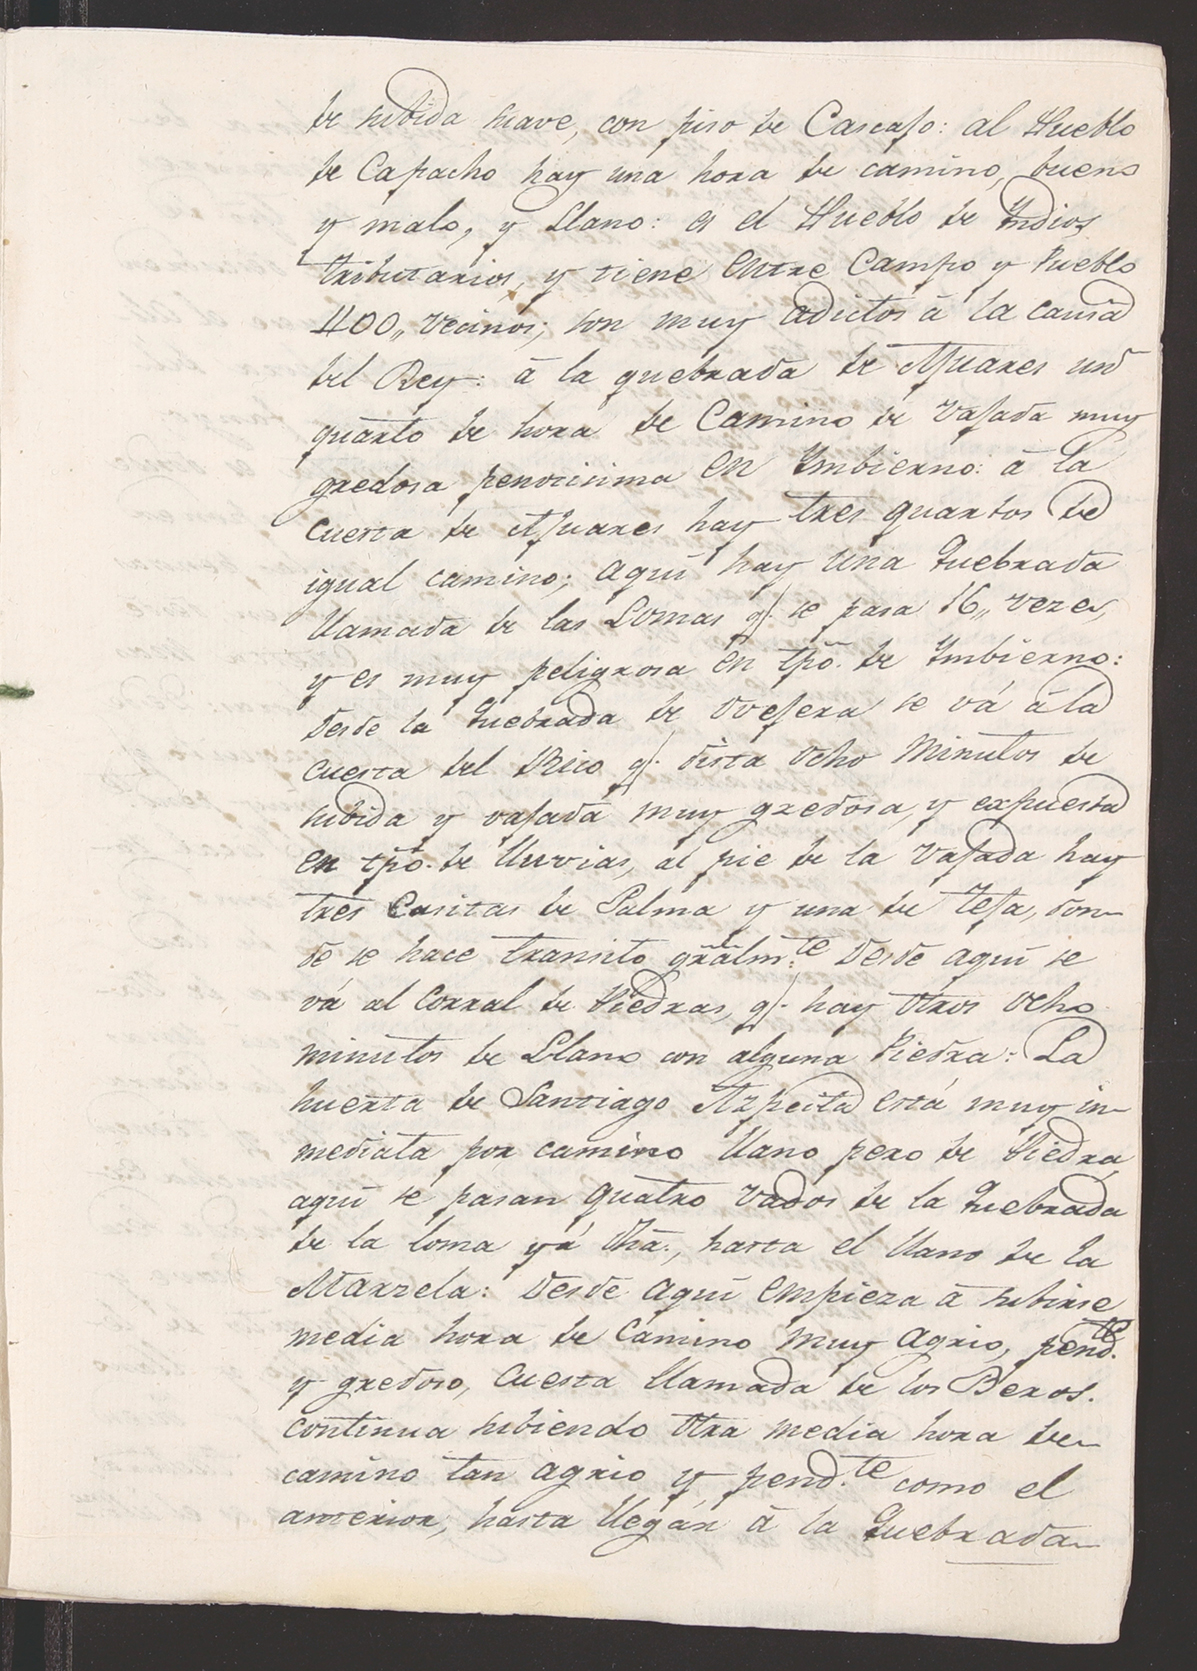 de subida suave, con piso de Cascajo: al Pueblo
de Capacho hay una hora de camino, bueno
y malo, y Llano: es el Pueblo de Yndios
tributarios, y tiene entre Campo y Pueblo
400,, vecinos; son muy adictos â la causa
del Rey: â la quebrada de Ajuares un
quarto de hora de Camino de vajada muy
gredosa penosisima en Ymbierno: â la
cuesta de Ajuares hay tres quartos de
igual camino; aqui hay una Quebrada
llamada de las Lomas q.^ se pasa 16,, vezes,
y es muy peligrosa en tpô. de Ymbierno:
desde la Quebrada de Ovejera se vá â la
cuesta del Rico q.^ dista ocho minutos de
subida y vajada muy gredosa, y expuesta
en tpô. de lluvias, al pie de la vajada hay
tres Casitas de Palma y una de Teja, don-
de se hace transito grâlm.te Desde aqui se
vá al Corral de Piedras, q.^ hay otros ocho
minutos de Llano con alguna Piedra: La
huerta de Santiago Azpeita está muy in-
mediata por camino llano pero de Piedra,
aqui se pasan quatro vados de la Quebrada
de la loma yá dhâ., hasta el llano de la
Marzela: Desde aqui empieza â subirse
media hora de camino muy agrio, pend.te
y gredoso, Cuesta llamada de los Beros.
continua subiendo otra media hora de
camino tan agrio y pend.te como el
anterior, hasta llegár â la Quebrada